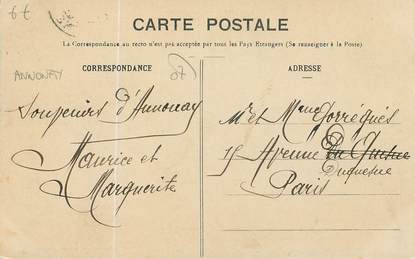 6€
CARTE POSTALE
La Correspondance au recto n'est pas acceptée par tous les Pays Etrangers (Se renseigner à la Poste)
CORRESPONDANCE
ANNONAY
07
Souvenirs d'Annonay
Maurice et
Marguerite
ADRESSE
Mr et Mme Gorrégués
15 Avenue Du Quesne
Duquesne
Paris